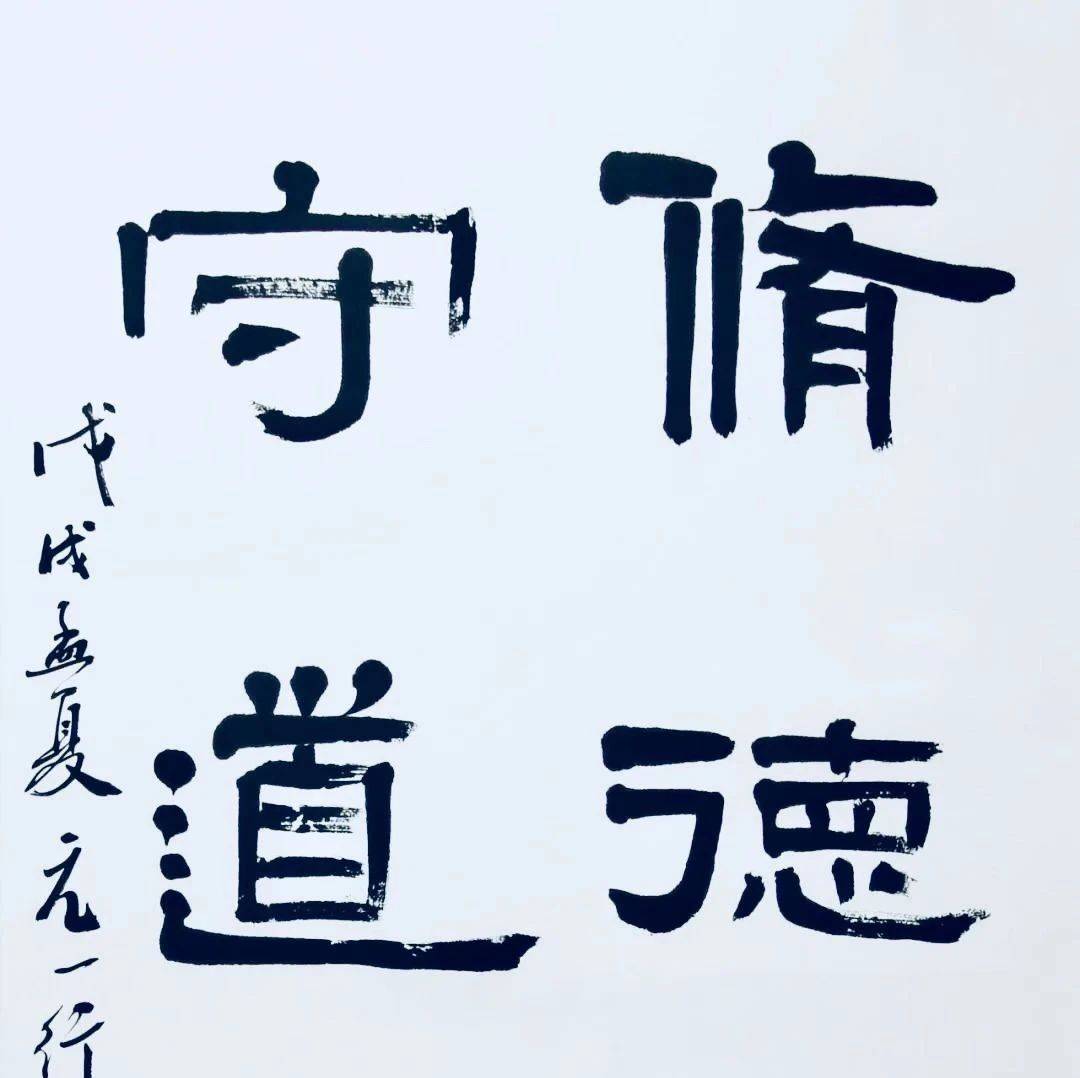 脩德
守道
戊戌孟夏元一行